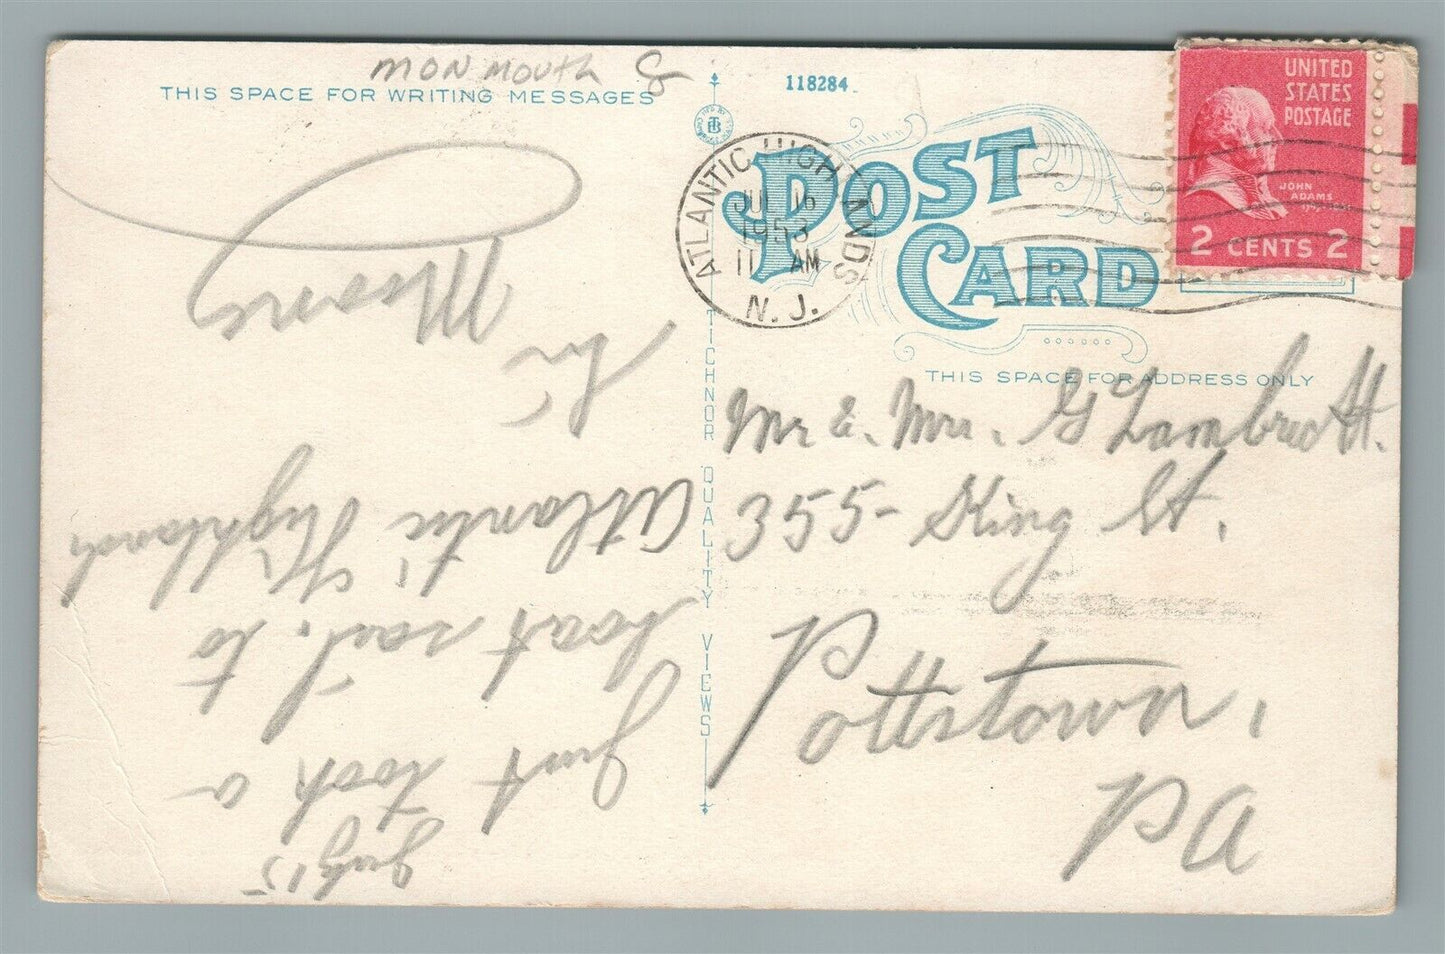 monmouth
THIS SPACE FOR WRITING MESSAGES
118284
POST
CARD
ATLANTIC HIGHLANDS
JUL 16
1953
11 AM
N. J.
UNITED
STATES
POSTAGE
JOHN
ADAMS
2 CENTS 2
THIS SPACE FOR ADDRESS ONLY
TICHNOR QUALITY VIEWS
Mr & Mrs. G Lambrecht.
355- King St.
Pottstown
Pa
July 15
Just took a
boat sail, to
Atlantic Highlands